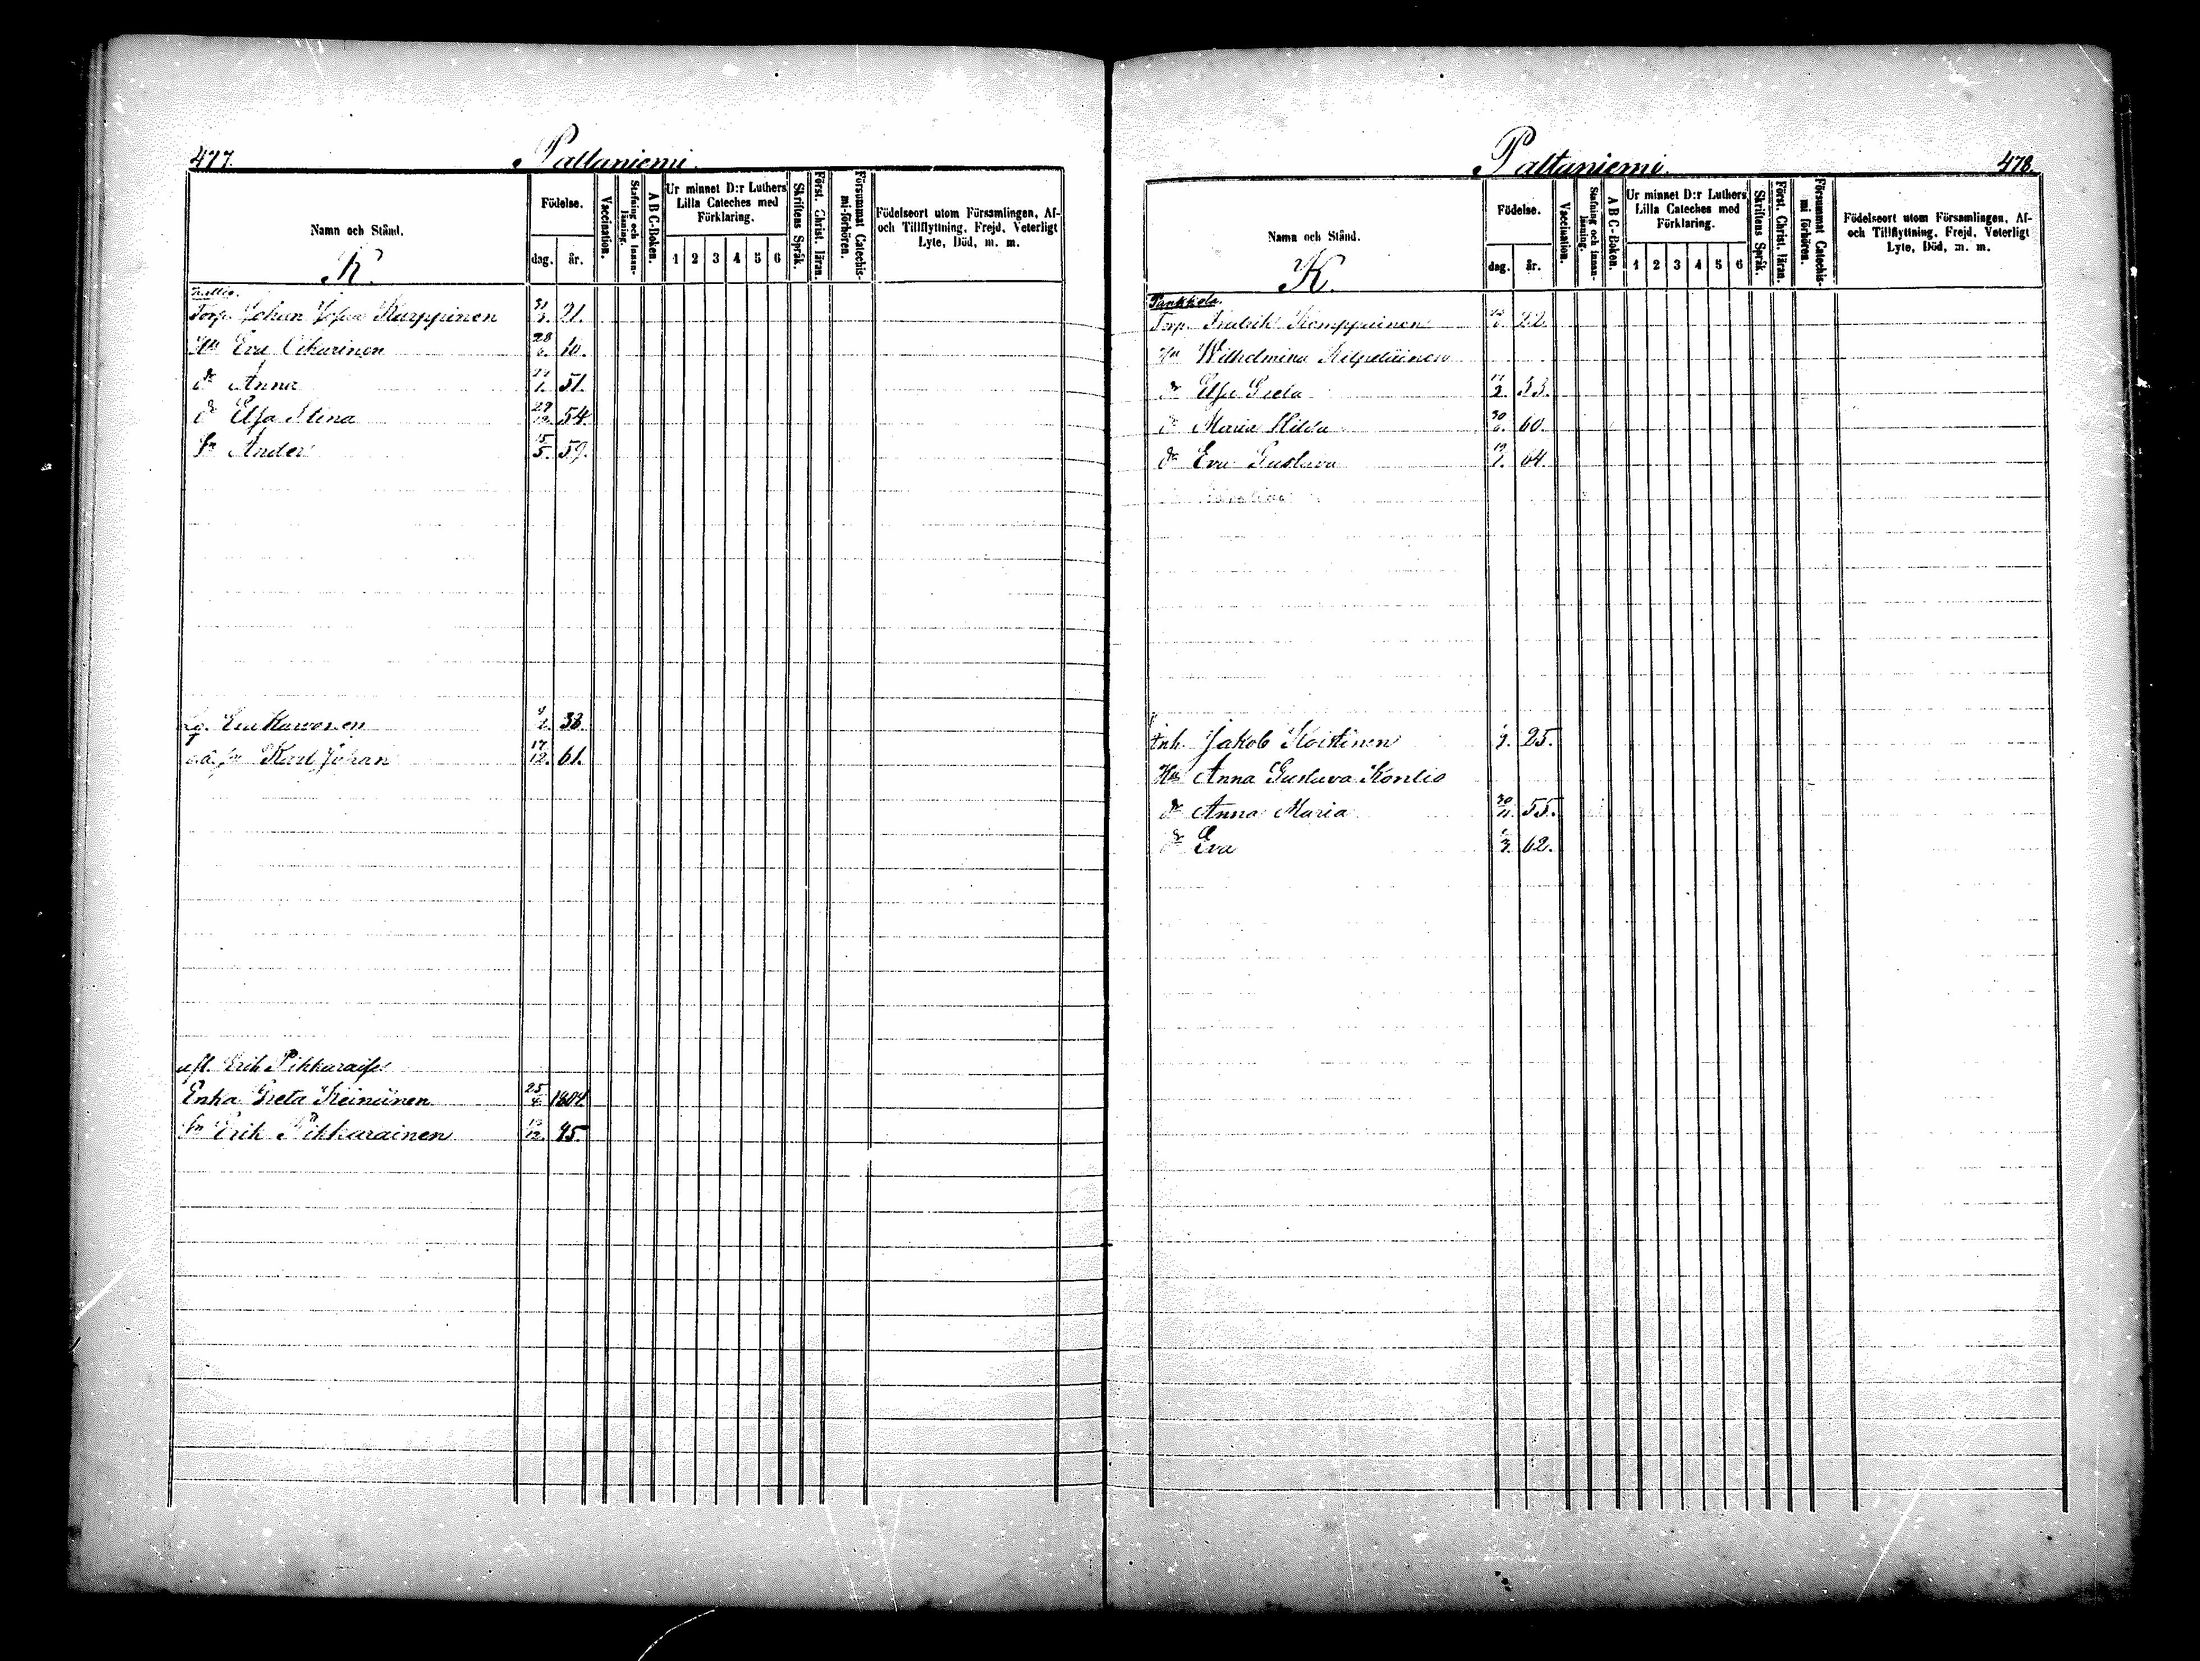 477.
Paltaniemi.
Namn och Stånd.
K.
Födelse.
dag.
år.
Vaccination.
Stafning och Innan-läsning.
A B C-Boken.
Ur minnet D:r Luthers
Lilla Cateches med
Förklaring.
1 2 3 4 5 6
Skriftens Språk.
Först. Christ. läran.
Försummat Catechis-
mi-förhören.
Födelseort utom Församlingen, Af-
och Tillflyttning, Frejd, Veterligt
Lyte, Död, m. m.
Torp. Johan Karppinen 21.
Hu Eva Oikarinen 10.
dr Anna 1. 51.
dr Elsa Stina 29 54
Sn Ander 15/5. 59.
Eva Karvonen 38.
Karl Johan 17/12. 61.
afl. Erik Pikkarais
Enka Greta Keinänen 25 1804
Sn Erik Pikkarainen 12. 45.
Paltaniemi.
478.
Namn och Stånd.
K.
Födelse.
dag.
år.
Vaccination.
Stafning och Innan-
läsning.
A B C-Boken.
Ur minnet D:r Luthers
Lilla Cateches med
Förklaring.
1 2 3 4 5 6
Skriftens Språk.
Först. Christ. läran.
Försummat Catechis-
mi förhören.
Födelseort utom Församlingen, Af-
och Tillflyttning, Frejd, Veterligt
Lyte, Död, m. m.
Torp. Fredrik Kemppainen 22.
Hu Wilhelmina Kilpeläinen
dr Elsa Greta 2. 53.
dr Maria Hilda 30/6. 60.
dr Eva Gustava 1. 64.
Inh. Jakob Koistinen 25.
Hu Anna Gustava Kontio
dr Anna Maria 30/11. 55.
dr Eva 3. 62.